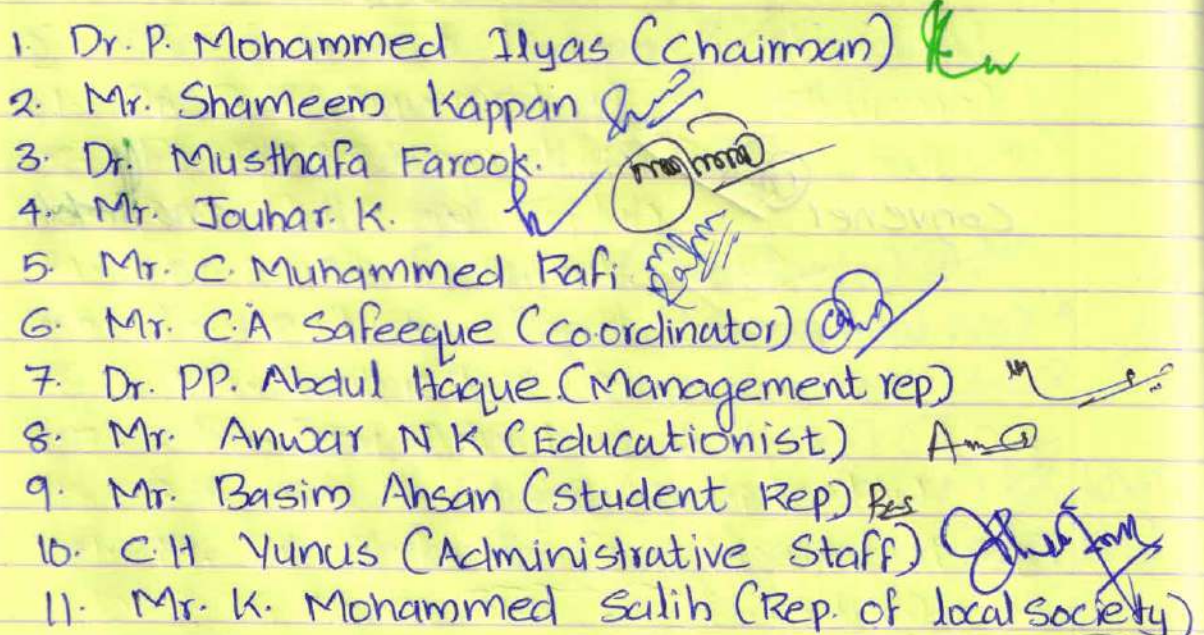 1. Dr. P. Mohammed Ilyas (Chairman)
2. Mr. Shameem Kappan
3. Dr. Musthafa Farook.
4. Mr. Jouhar. K.
5. Mr. C. Muhammed Rafi
6. Mr. C.A Safeeque (Co.ordinator)
7. Dr. PP. Abdul Haque (Management rep)
8. Mr. Anwar N K (Educationist)
9. Mr. Basim Ahsan (Student Rep)
10. C.H Yunus (Administrative Staff)
11. Mr. K. Mohammed Salih (Rep. of local society)